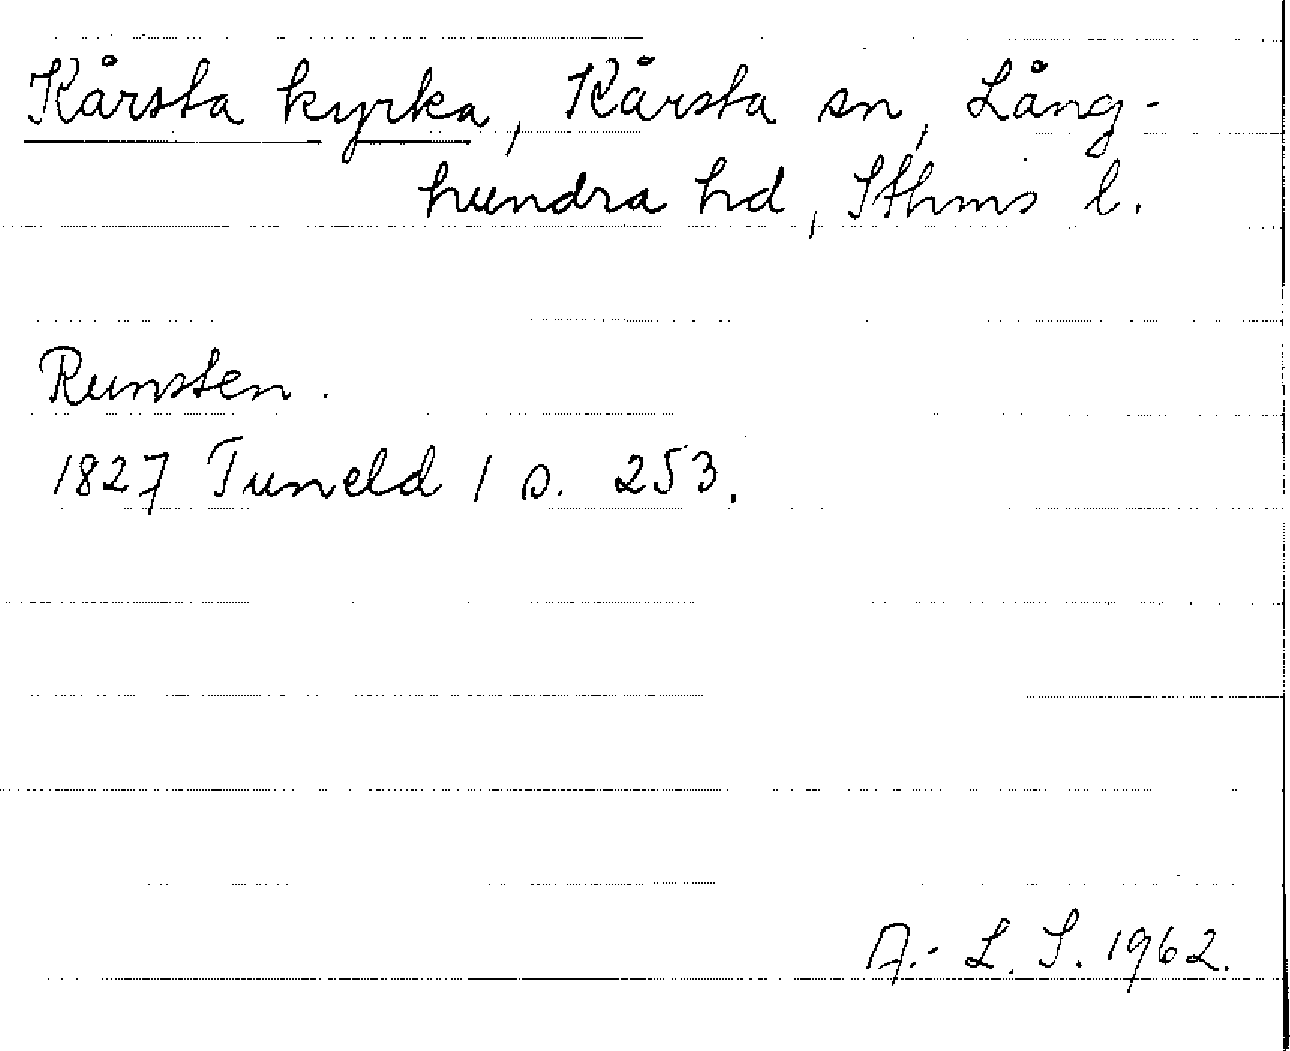 Kårsta kyrka, Kårsta sn, Lång-
hundra hd, Sthms l.
Runsten.
1827 Tuneld 1 s. 253.
A.-L. S. 1962.